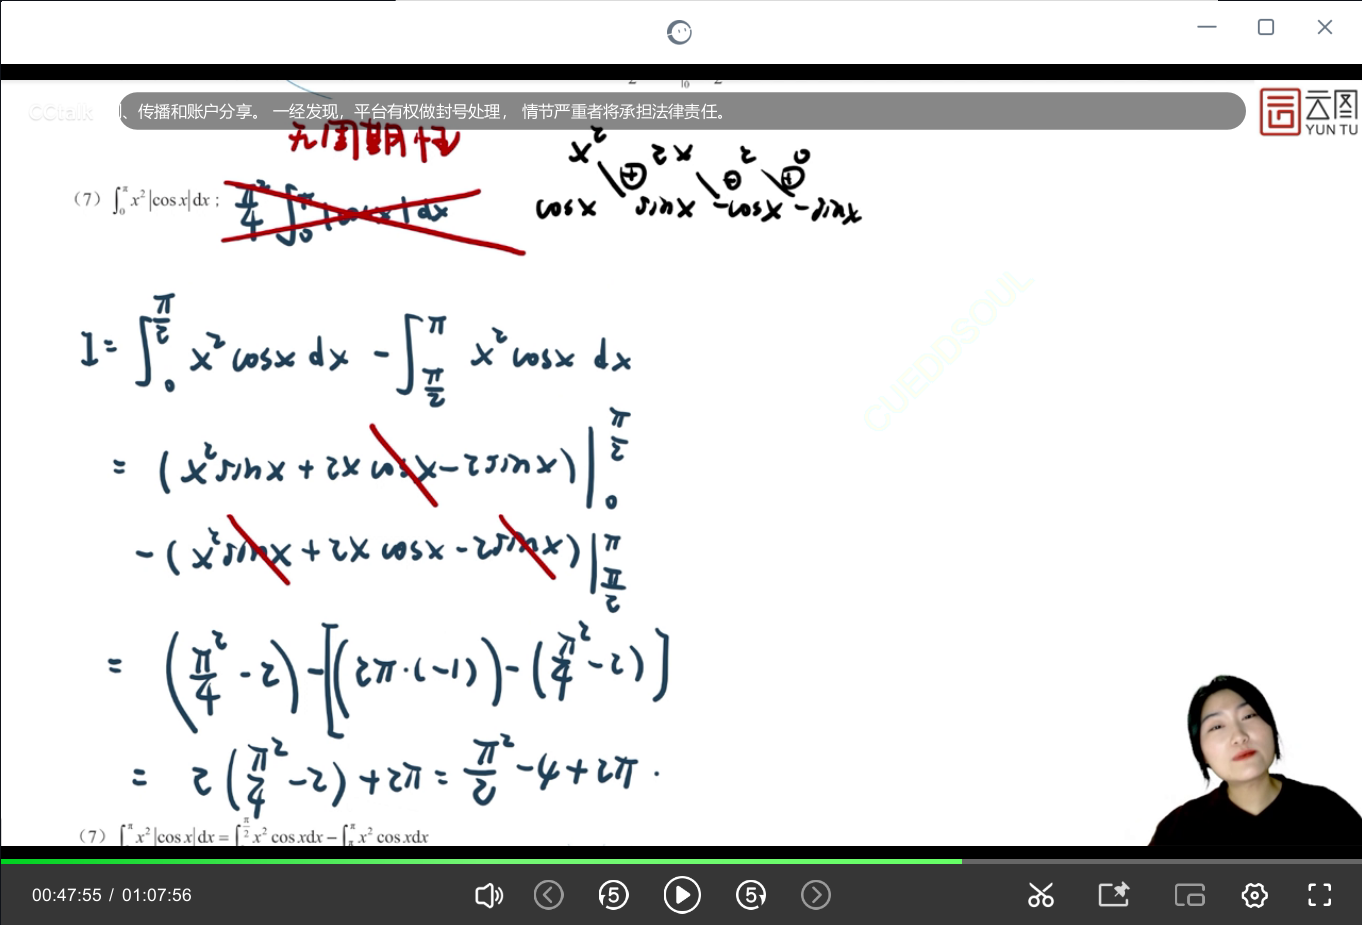 CCtalk
、传播和账户分享。 一经发现，平台有权做封号处理， 情节严重者将承担法律责任。
云图
YUN TU
无周期性
x² 2x 2 0
⊕ ⊖ ⊕
cosx sinx -cosx -sinx
（7）∫₀^π x²|cos x|dx ; π²/4 ∫₀^π |cosx|dx
CUEDDSOUL
I = ∫₀^(π/2) x² cosx dx - ∫_(π/2)^π x² cosx dx
= (x² sinx + 2x cosx - 2sinx)|₀^(π/2)
- (x² sinx + 2x cosx - 2sinx)|_(π/2)^π
= (π²/4 - 2) - [(2π·(-1)) - (π²/4 - 2)]
= 2(π²/4 - 2) + 2π = π²/2 - 4 + 2π .
（7）∫^π x²|cos x|dx = ∫^(π/2) x² cos xdx − ∫^π x² cos xdx
00:47:55 / 01:07:56
5 5